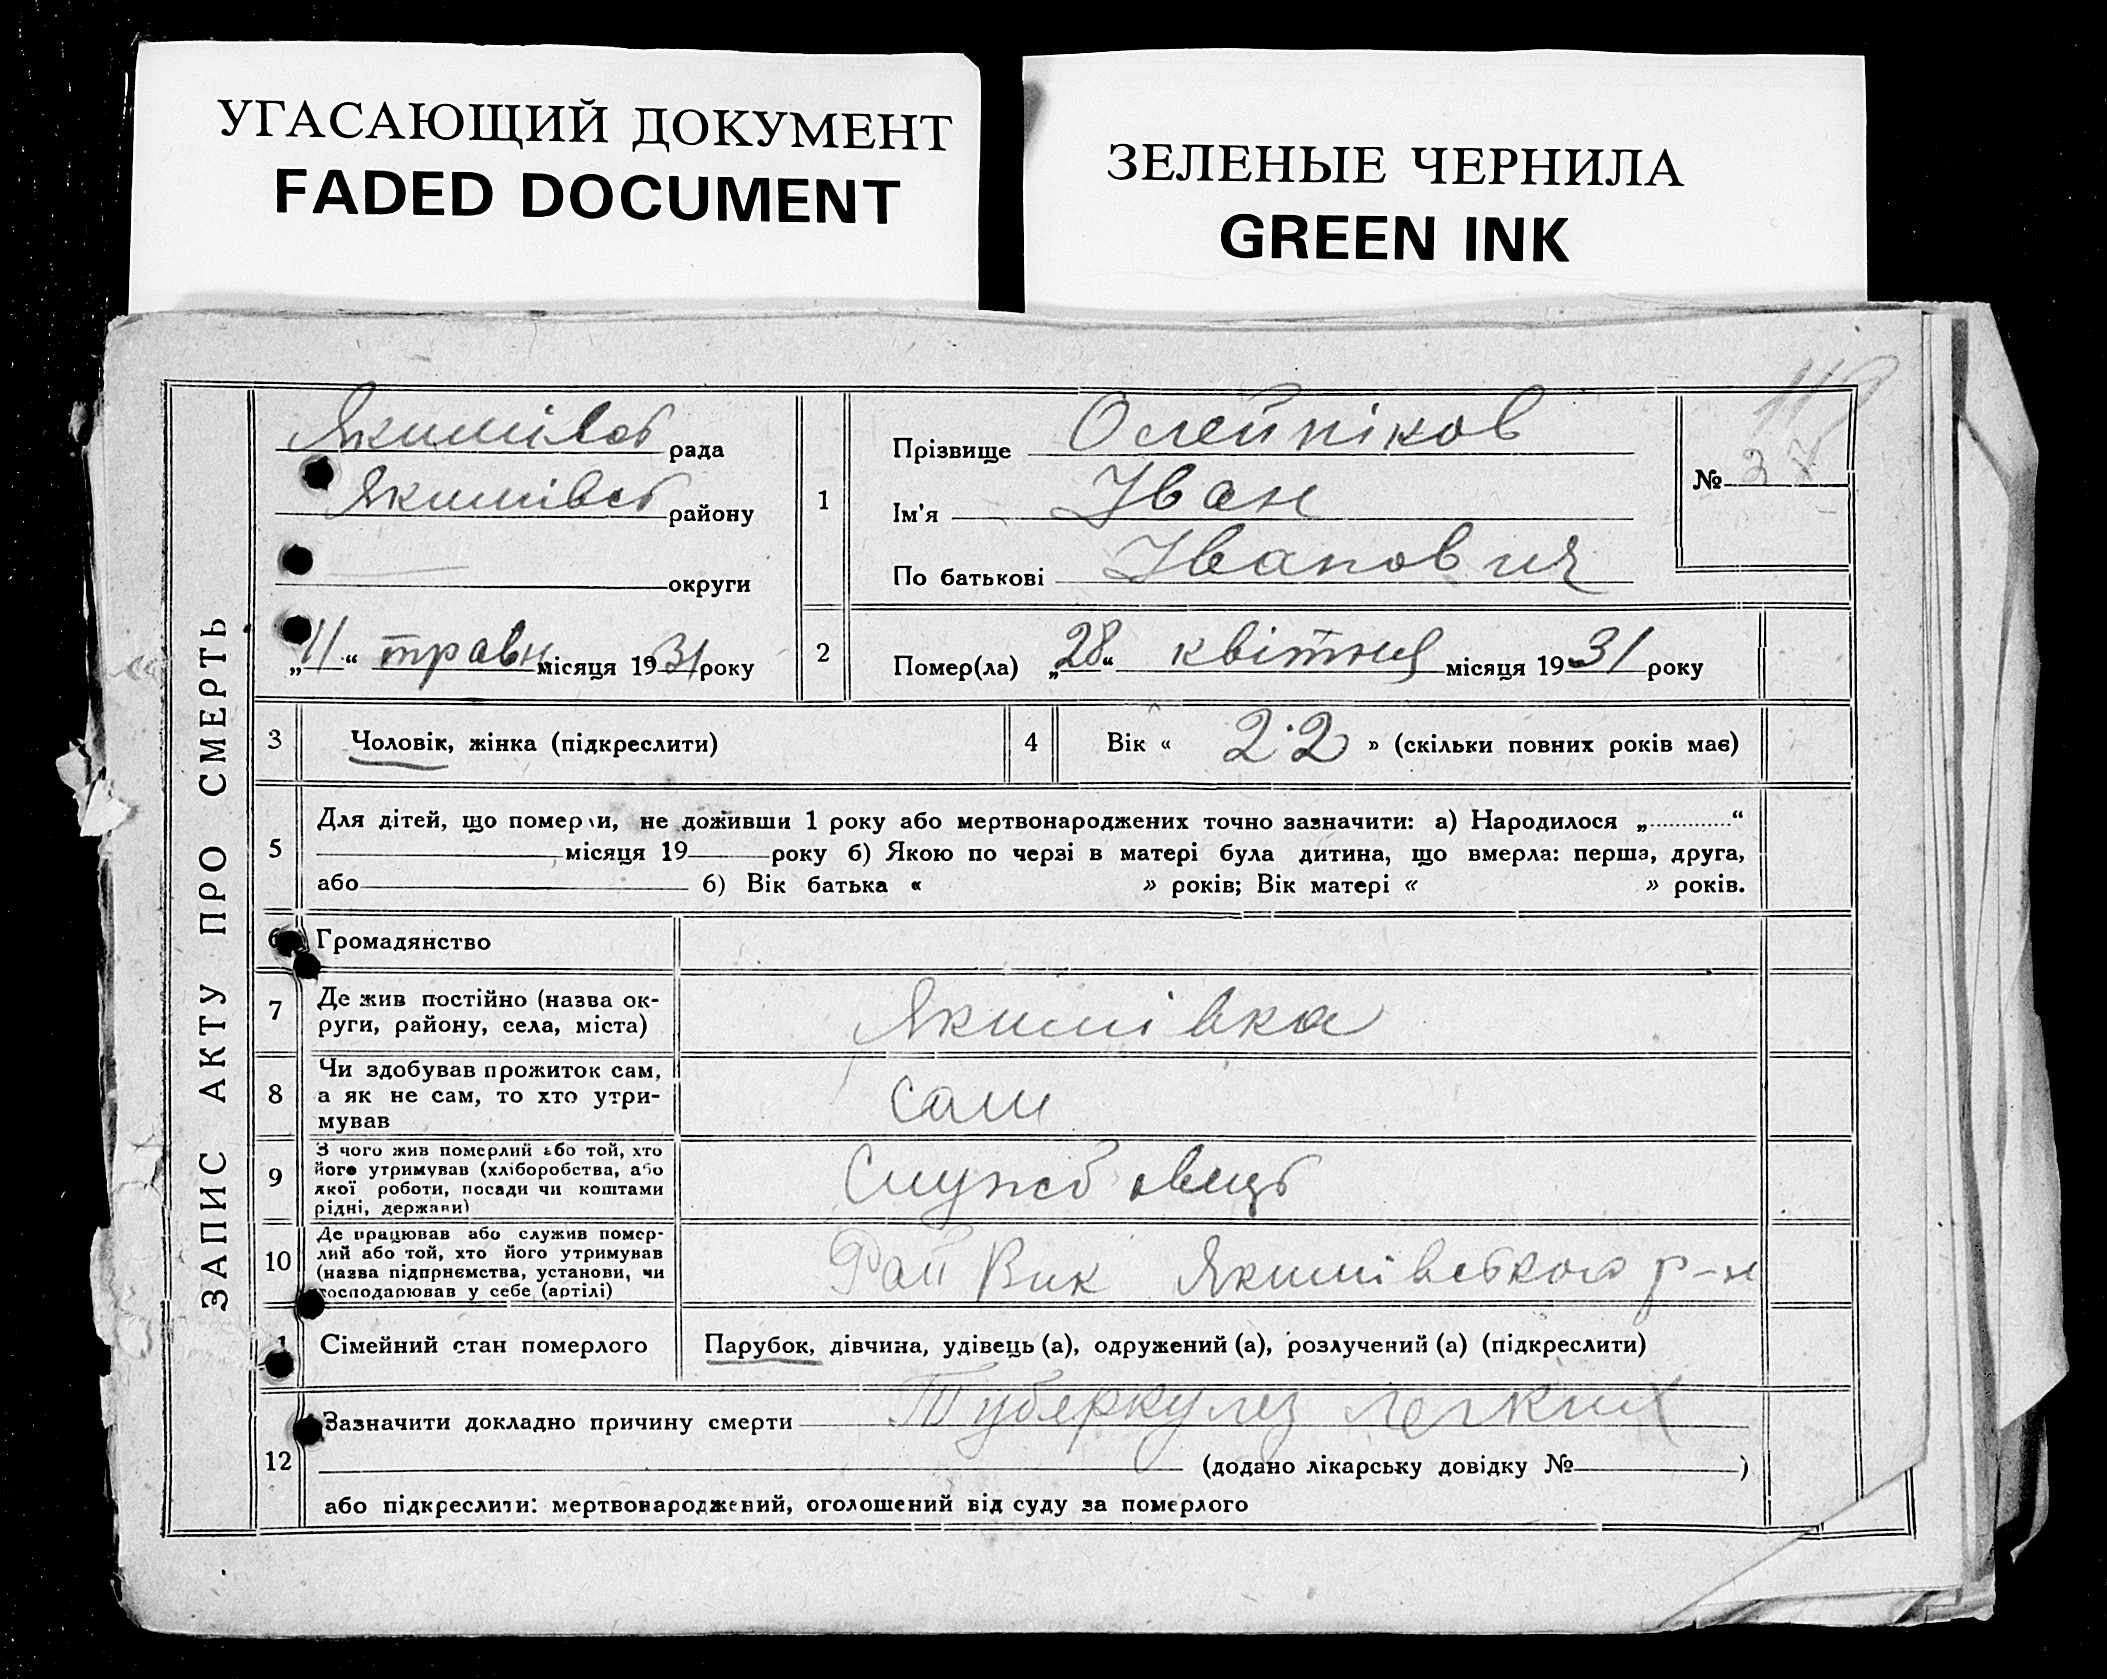 УГАСАЮЩИЙ ДОКУМЕНТ
FADED DOCUMENT
ЗЕЛЕНЫЕ ЧЕРНИЛА
GREEN INK
ЗАПИС АКТУ ПРО СМЕРТЬ
Якимівсь рада
Якимівсь району
округи
„11“ травн місяця 1931 року
1
Прізвище Олейніков
Ім'я Іван
По батькові Іванович
№
2
Помер(ла) „28“ квітня місяця 1931 року
3 Чоловік, жінка (підкреслити)
4 Вік « 22 » (скільки повних років має)
5
Для дітей, що померли, не доживши 1 року або мертвонароджених точно зазначити: а) Народилося „............“
місяця 19 року б) Якою по черзі в матері була дитина, що вмерла: перша, друга,
або б) Вік батька « » років; Вік матері « » років.
6 Громадянство
7 Де жив постійно (назва ок-
руги, району, села, міста)
Якимівка
8 Чи здобував прожиток сам,
а як не сам, то хто утри-
мував
сам
9 З чого жив померлий або той, хто
його утримував (хліборобства, або
якої роботи, посади чи коштами
рідні, держави)
Службовець
10 Де працював або служив помер-
лий або той, хто його утримував
(назва підприємства, установи, чи
господарював у себе (артілі)
Рай Вик Якимівського р-н
11 Сімейний стан померлого
Парубок, дівчина, удівець (а), одружений (а), розлучений (а) (підкреслити)
12
Зазначити докладно причину смерти Туберкулез легких
(додано лікарську довідку № )
або підкреслити: мертвонароджений, оголошений від суду за померлого